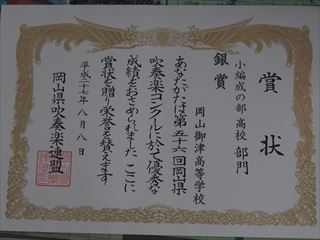 賞状
小編成の部 高校 部門
銀賞
岡山御津高等学校
あなたがたは第五十六回岡山県
吹奏楽コンクールに於て優秀な
成績をおさめられました ここに
賞状を贈り栄誉を讃えます
平成二十七年八月八日
岡山県吹奏楽連盟